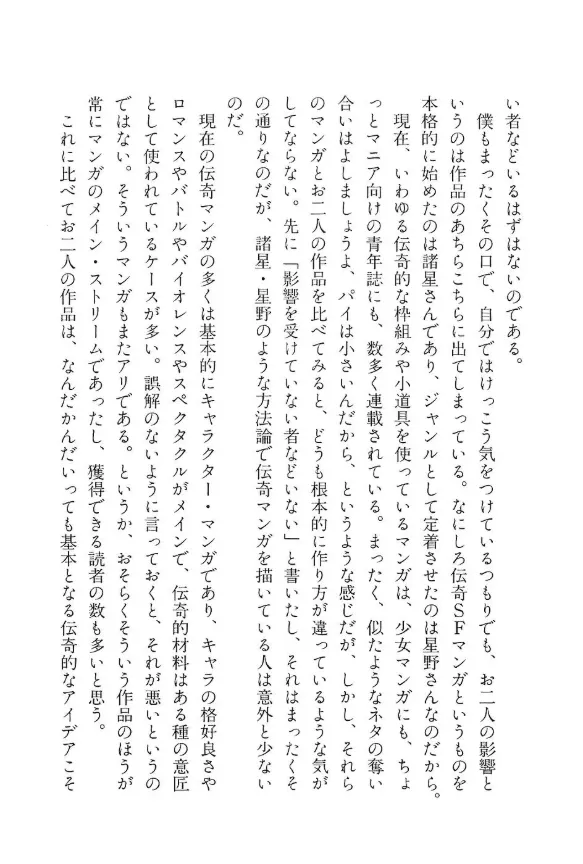 い者などいるはずはないのである。
僕もまったくその口で、自分ではけっこう気をつけているつもりでも、お二人の影響と
いうのは作品のあちらこちらに出てしまっている。なにしろ伝奇ＳＦマンガというものを
本格的に始めたのは諸星さんであり、ジャンルとして定着させたのは星野さんなのだから。
現在、いわゆる伝奇的な枠組みや小道具を使っているマンガは、少女マンガにも、ちょ
っとマニア向けの青年誌にも、数多く連載されている。まったく、似たようなネタの奪い
合いはよしましょうよ、パイは小さいんだから、というような感じだが、しかし、それら
のマンガとお二人の作品を比べてみると、どうも根本的に作り方が違っているような気が
してならない。先に「影響を受けていない者などいない」と書いたし、それはまったくそ
の通りなのだが、諸星・星野のような方法論で伝奇マンガを描いている人は意外と少ない
のだ。
現在の伝奇マンガの多くは基本的にキャラクター・マンガであり、キャラの格好良さや
ロマンスやバトルやバイオレンスやスペクタクルがメインで、伝奇的材料はある種の意匠
として使われているケースが多い。誤解のないように言っておくと、それが悪いというの
ではない。そういうマンガもまたアリである。というか、おそらくそういう作品のほうが
常にマンガのメイン・ストリームであったし、獲得できる読者の数も多いと思う。
これに比べてお二人の作品は、なんだかんだいっても基本となる伝奇的なアイデアこそ